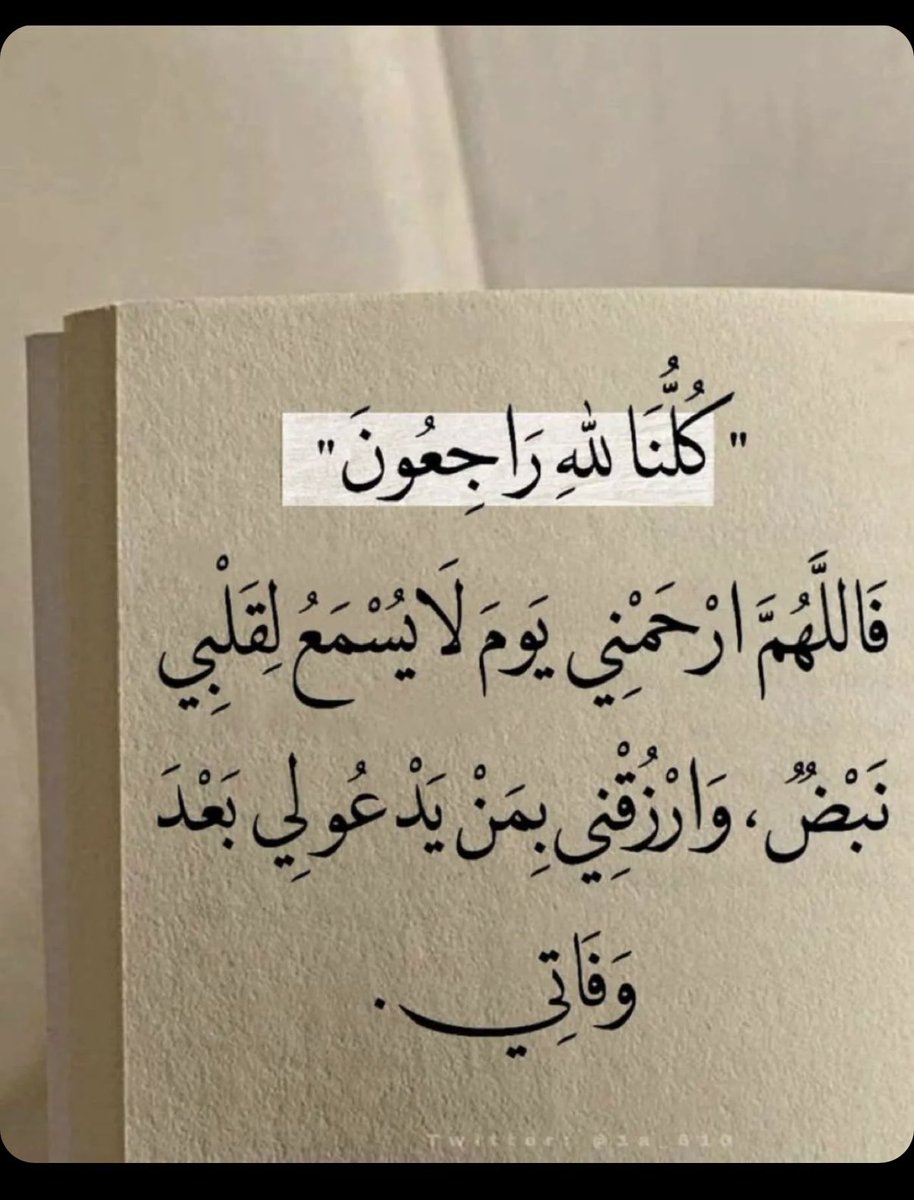 " كُلُّنَا للهِ رَاجِعُونَ "
فَاللَّهُمَّ ارْحَمْنِي يَومَ لَا يُسْمَعُ لِقَلْبِي
نَبْضٌ ، وَارْزُقْنِي بِمَنْ يَدْعُو لِي بَعْدَ
وَفَاتِي .